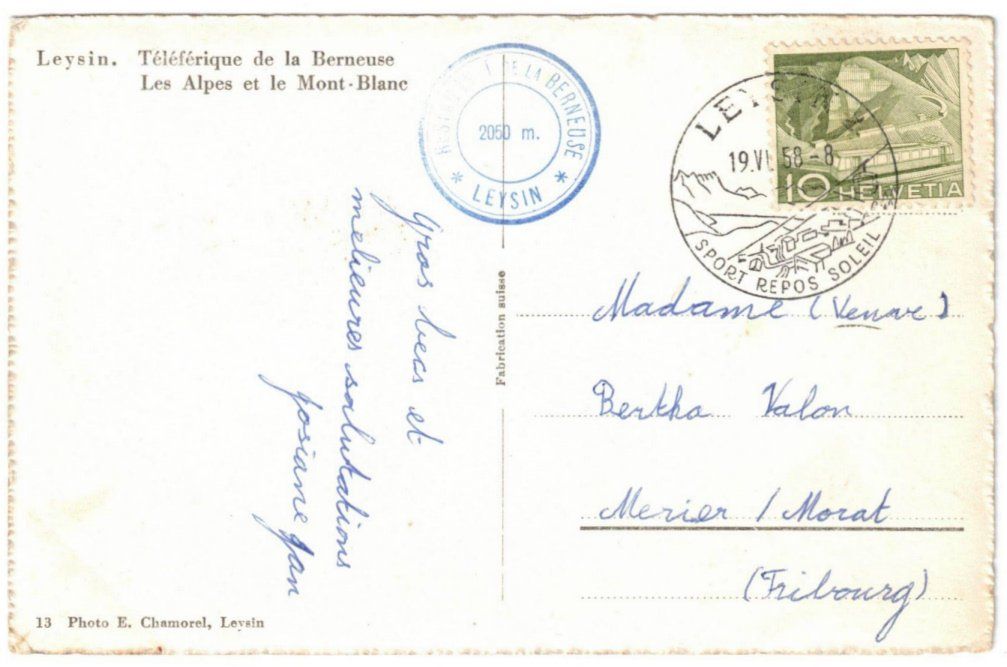 Leysin. Téléférique de la Berneuse
Les Alpes et le Mont-Blanc
DE LA BERNEUSE
2050 m.
* LEYSIN *
LEYSIN
19.VI.58-8
SPORT REPOS SOLEIL
10 HELVETIA
Gros becs et
melieures salutations
Josiane Jan
Fabrication suisse
Madame (Veuve)
Bertha Valon
Merier / Morat
(Fribourg)
13 Photo E. Chamorel, Leysin